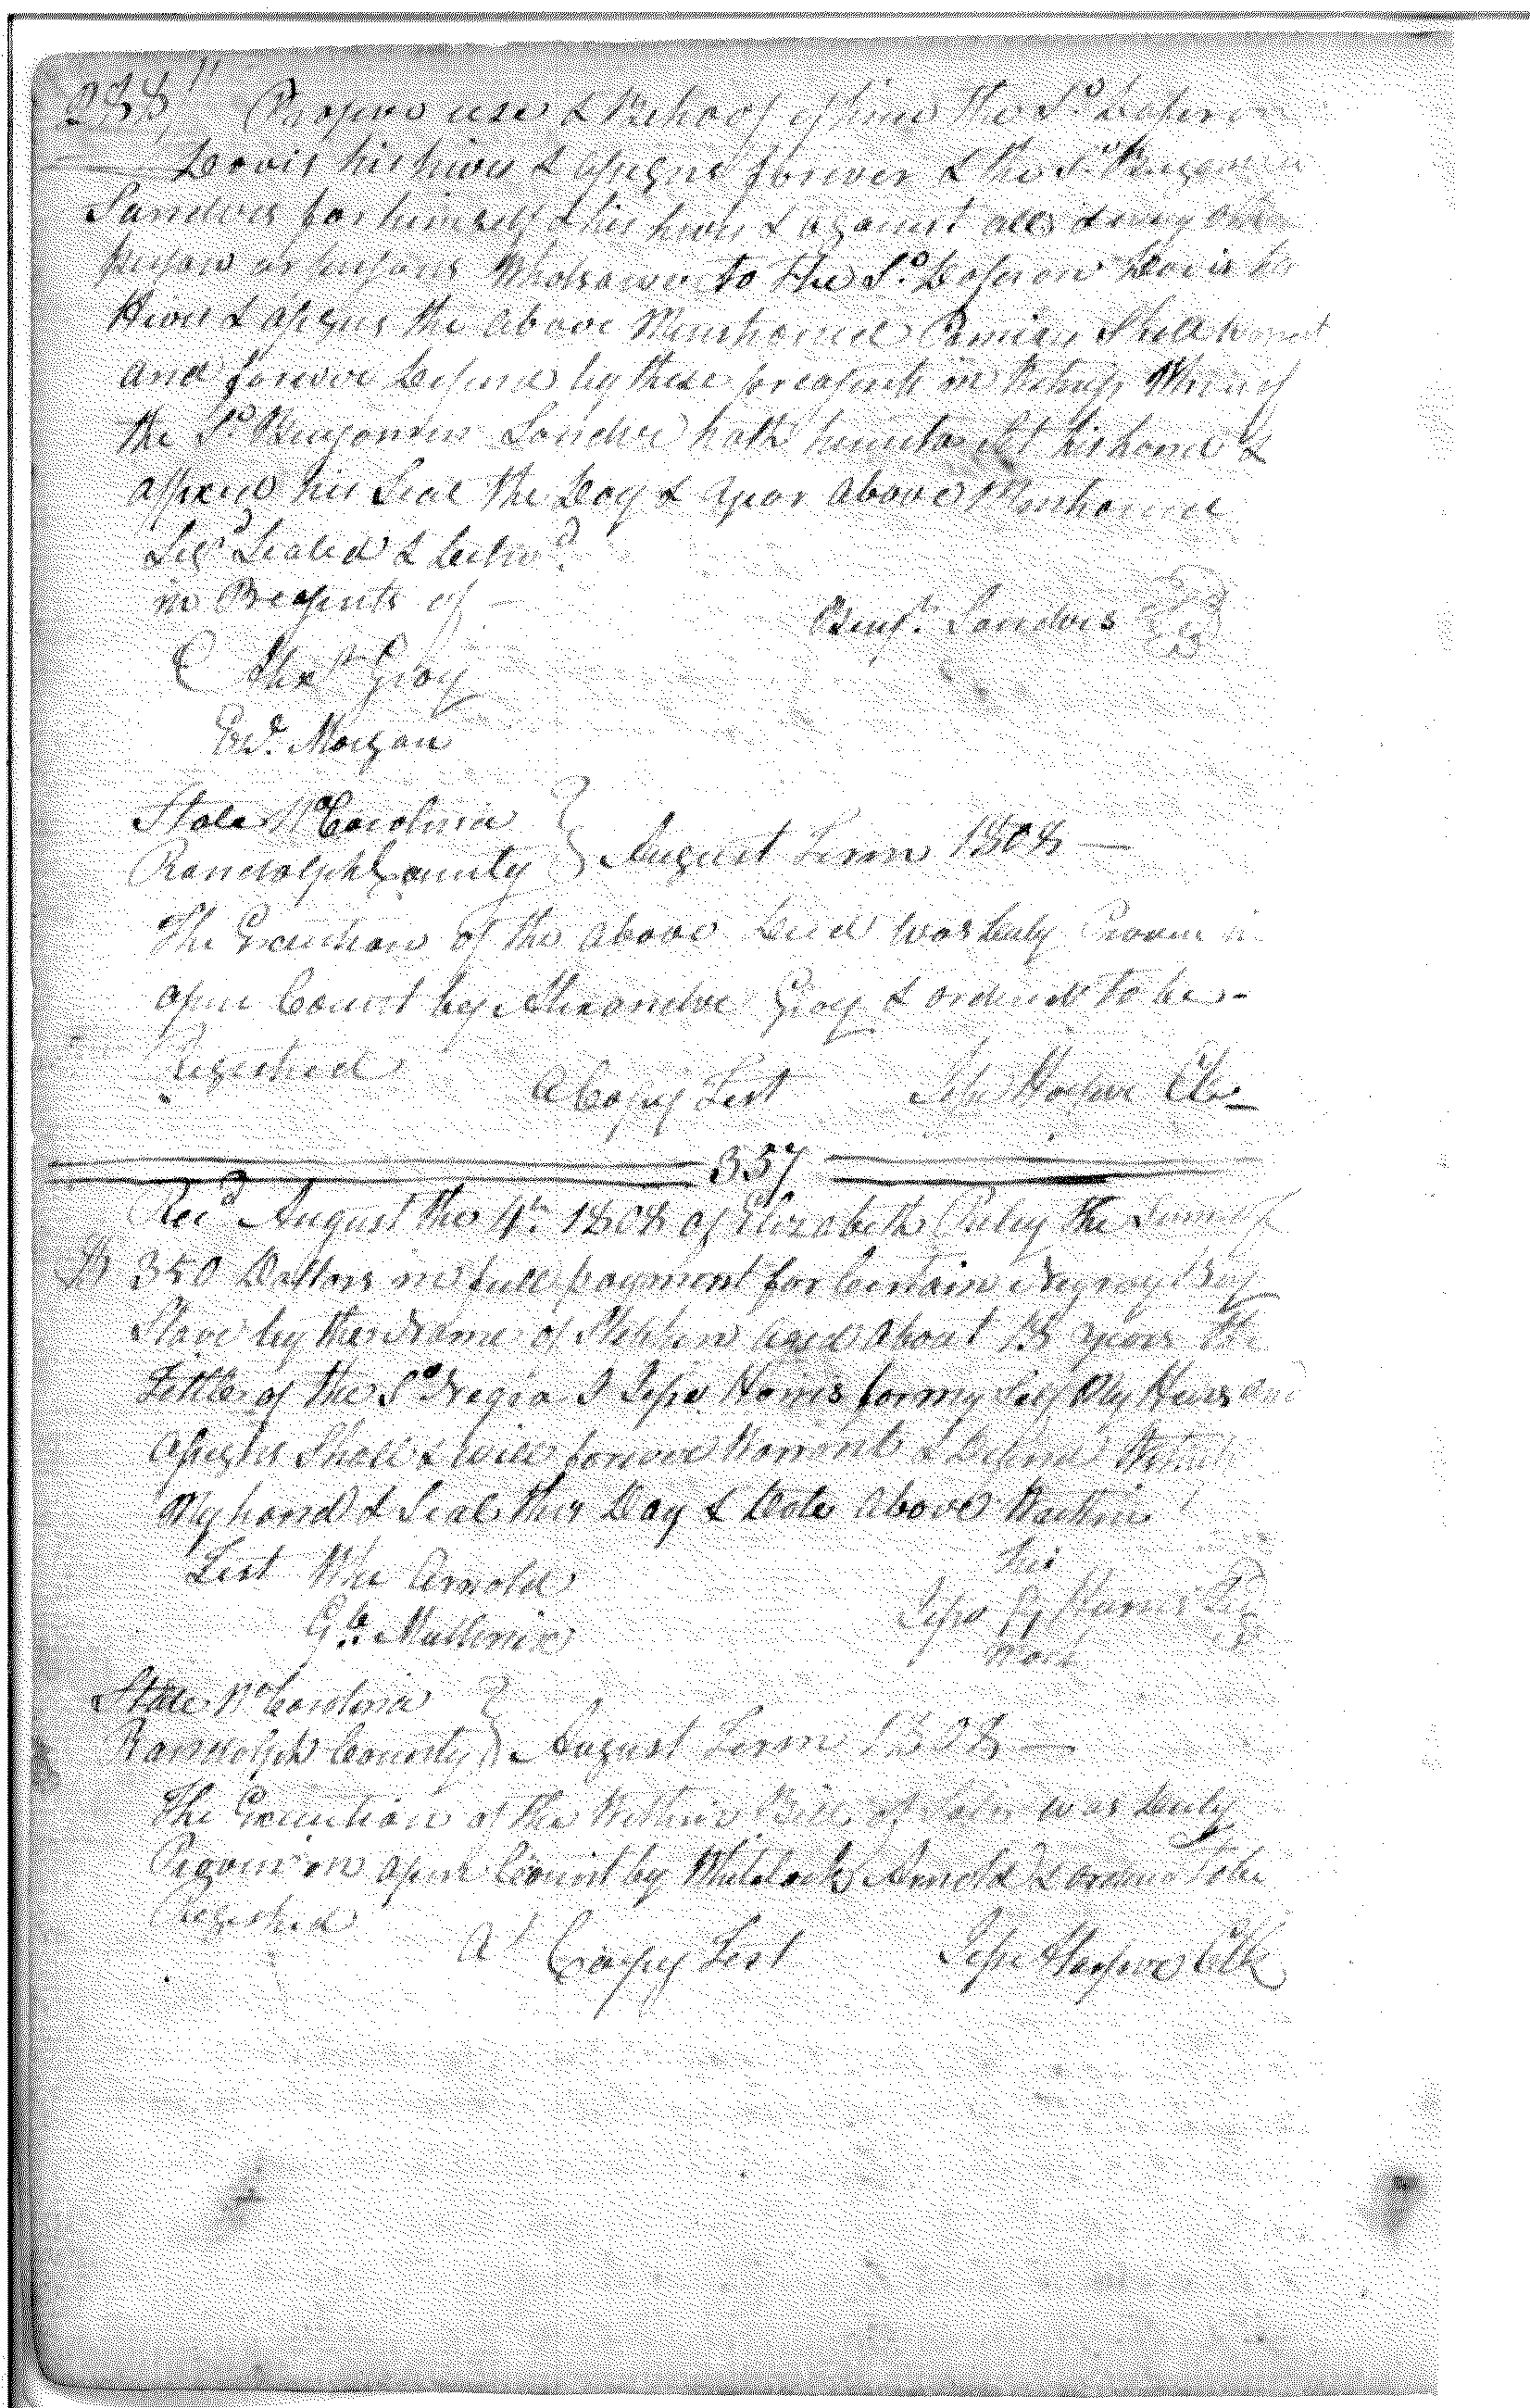 238
Proper use & Behoof of him the Sd.
Davis his hires & assigns forever & the Sd. Benjamin
Sanders for himself & his hires & against all & every other
person or persons Whatsoever to the Sd. Davis his
Hires & assigns the above Menshoned Premises Shall Warrent
and forever Defend by these preasents in Witness Whereof
the Sd. Benjamin Sander hath hereunto Set his hand &
affixed his Seal the Day & year above Menshoned
Sigd Sealed & Delivd.
in Preasents of
Benjn. Sanders Seal
Alexr. Gray
Morgan
State No Carolina
Randolph County } August Term 1808 —
The Execution of the above Deed was Duly Proven in
open Court by Alexander Gray & ordered to be -
Registred
A Copy Test Jesse Harper Clk
357
Recd August the 4th. 1808 of Elizabeth the Sum of
350 Dollars in full payment for Certain Negroy Boy
Slave by the Name of Stephen aged about 18 years the
Tittle of the Sd Negro I Jesse Harris for my Self My Heirs and
assigns Shall & will forever Warrent & Defend Witness
My hand & Seal this Day & Date above Written
Test Wh Arnold
his
Jesse Harris Seal
mark
Mullinix
State No Carolina
Randolph County } August Term 1808 —
The Execution of the Within Bill of Sale was Duly
Proven in open Court by Whitlock Arnold & ordered to be
Registred
A Coapy Test Jesse Harper Clk